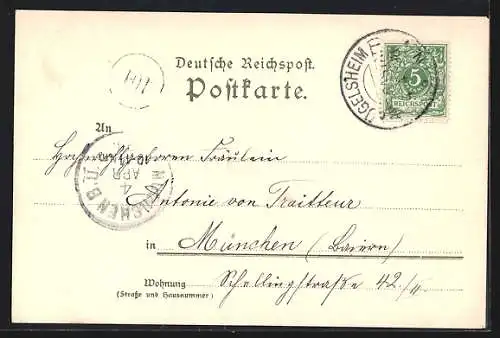 Deutsche Reichspost.
Postkarte.
101
5
REICHSPOST
An
Hochwohlgeboren Fräulein
MUENCHEN B.II.
4
APR
Antonie von Traitteur
in München (Baiern)
Wohnung Schellingstraße 42/II.
(Straße und Hausnummer)